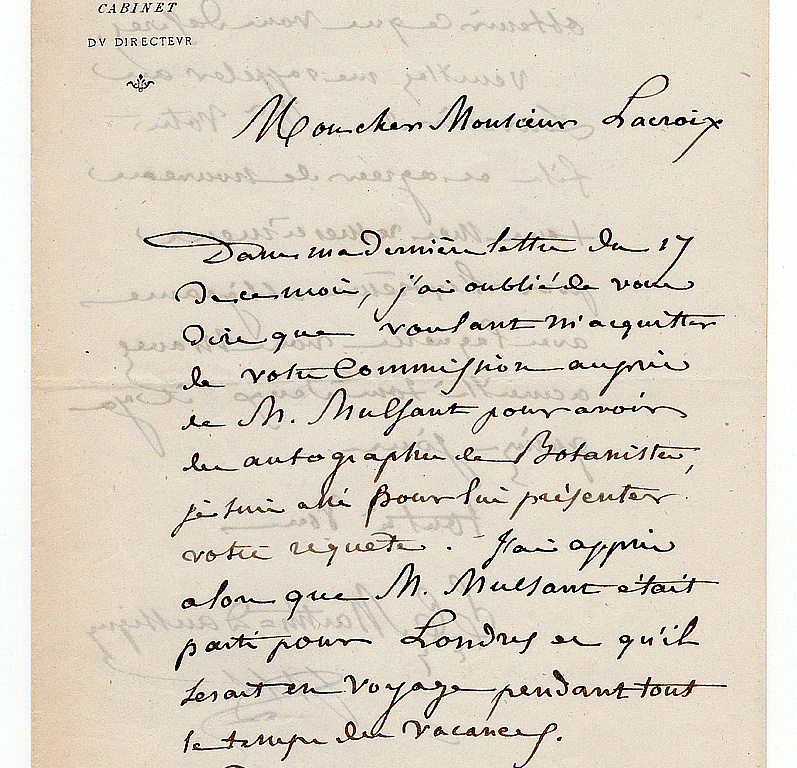 CABINET
DV DIRECTEVR
Mon cher Monsieur Lacroix
Dans ma dernière lettre du 17
de ce mois, j'ai oublié de vous
dire que voulant m'acquitter
de votre Commission auprès
de M. Mulsant pour avoir
des autographes de Botanistes,
je suis allé pour lui présenter
votre requête. J'ai appris
alors que M. Mulsant était
parti pour Londres et qu'il
serait en voyage pendant tout
le temps des vacances.